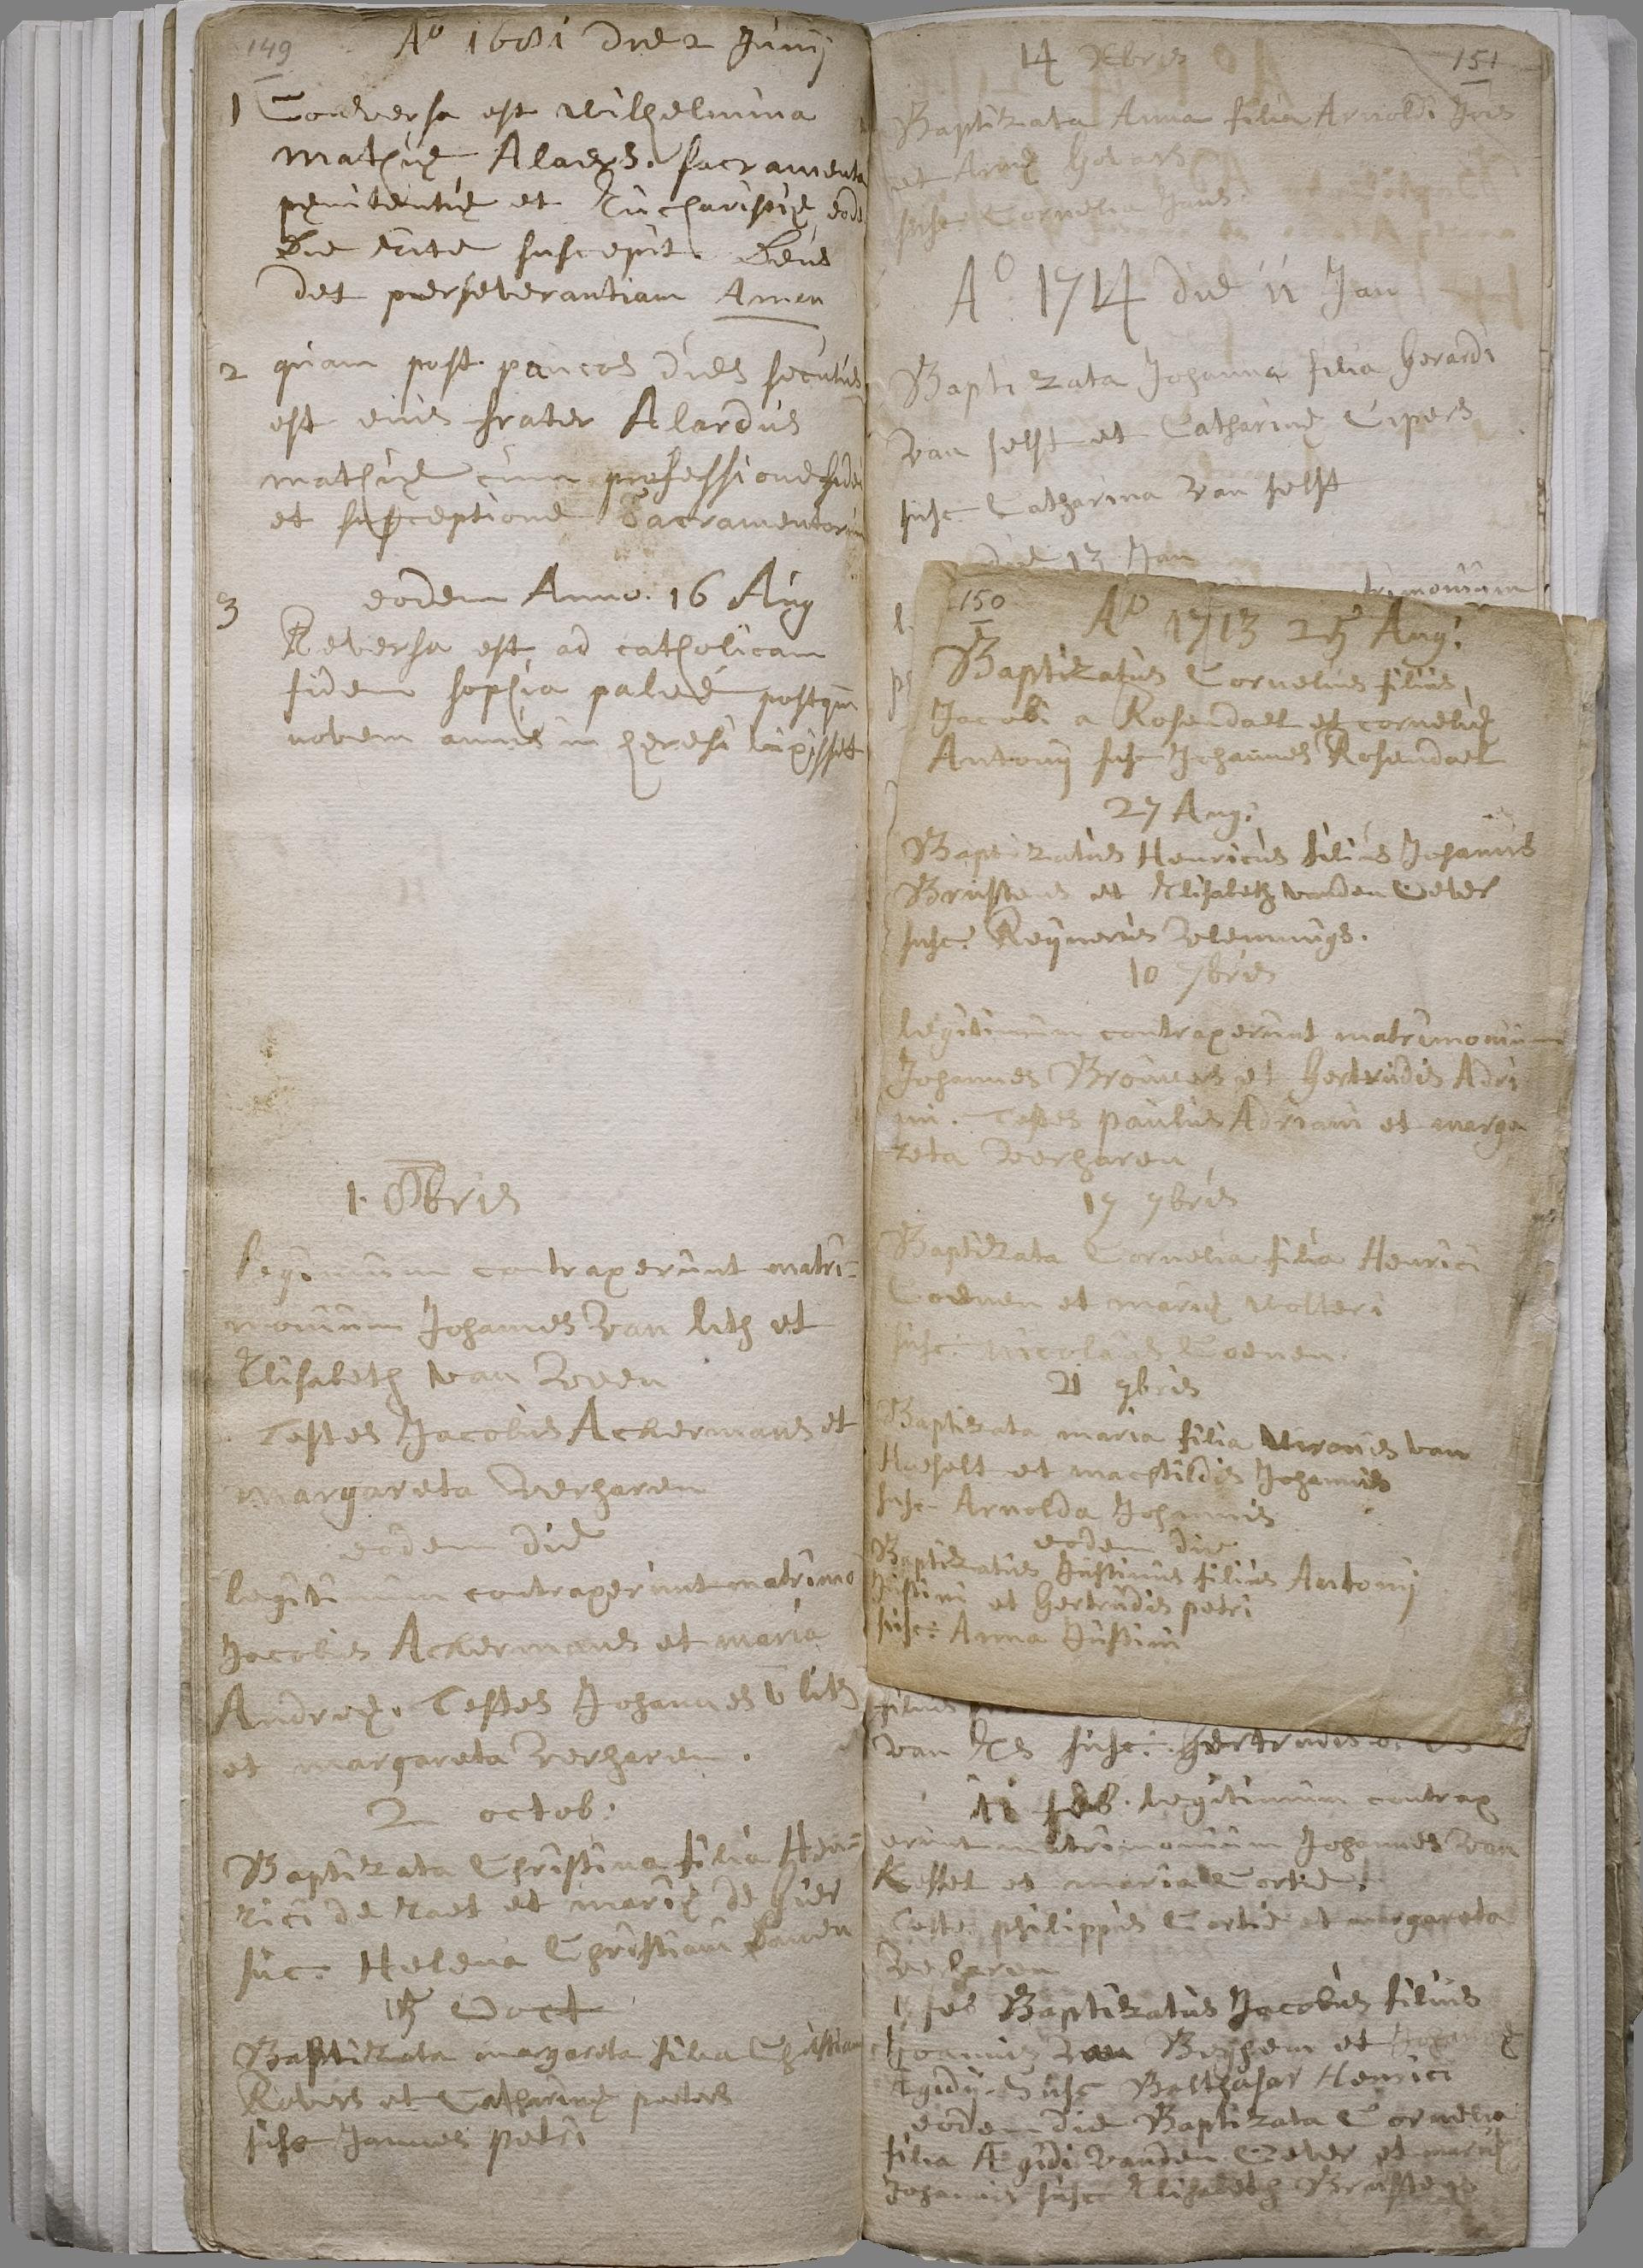 149
A° 1681 die 2 Junij
1 Conversa est Wilhelmina
Mathię Alaers. sacramenta
pęnitentię et Eucharistię eod
die rite suscepit. Deus
det perseverantiam Amen
2 quam post paucos dies secutus
est eius frater Alardus
mathię cum professione fidei
et susceptione Sacramentorum
3 eodem Anno. 16 Aug
Reversa est ad catholicam
fidem sophia postqm
novem annis in hęresi vixisset
1. 8bris
legitimum contraxerunt matri-
monium Johannes van lith et
Elisabeth van
Testes Jacobus Ackermans et
margareta verharen
eodem die
legitimum contraxerunt matrimo
Jacobus Ackermans et maria
Andreę. Testes Johannes v lith
et margareta verharen.
2 octob:
Baptizata Christina filia Hen=
rici de raet et marię de
susc. Helena Christiani
Oct
Baptizata margareta filia Christiani
Rovers et Catharinę peeters
susc Jannes petri
151
14 Xbris
Baptizata Anna filia Arnoldi
et Annę Govarts
susc. Cornelia
A° 1714 die 11 Jan
Baptizata Johanna filia Gerardi
van helst et Catharinę Cipers
susc. Catharina van helst
die 13 Jan
matrimonium
150
A° 1713 25 Aug:
Baptizatus Cornelius filius
Jacobi a Rosendael et cornelię
Antonij susc Johannes Rosendael
27 Aug:
Baptizatus Henricus filius Johannis
Brustens et Elisabeth vanden Oever
susc. Reynerus
10 7bris
legitimum contraxerunt matrimonium
Johannes Brouwers et Gertrudis Adri
ani. Testes paulus Adriani et marga
reta verharen
17 7bris
Baptizata Cornelia filia Henrici
Coenen et marię Wolteri
susc. Nicolaus Coenen.
21 7bris
Baptizata maria filia van
Haeselt et mactildis Johannis
susc Arnolda Johannis
eodem die
Baptizatus Justinus filius Antonij
Justini et Gertrudis petri
susc: Anna Justini
filius
van susc: Gertrudis
11 feb. legitimum contrax
erunt matrimonium Johannes van
Kessel et maria Cortie.
Testes philippus Cortie et margareta
verharen
feb Baptizatus Jacobus filius
Joannis van Berghem et
Ęgidij. Susc Balthasar Henrici
eodem die Baptizata Cornelia
filia Ægidi vanden Oever et marię
Johannis susc Elisabeth Brustens